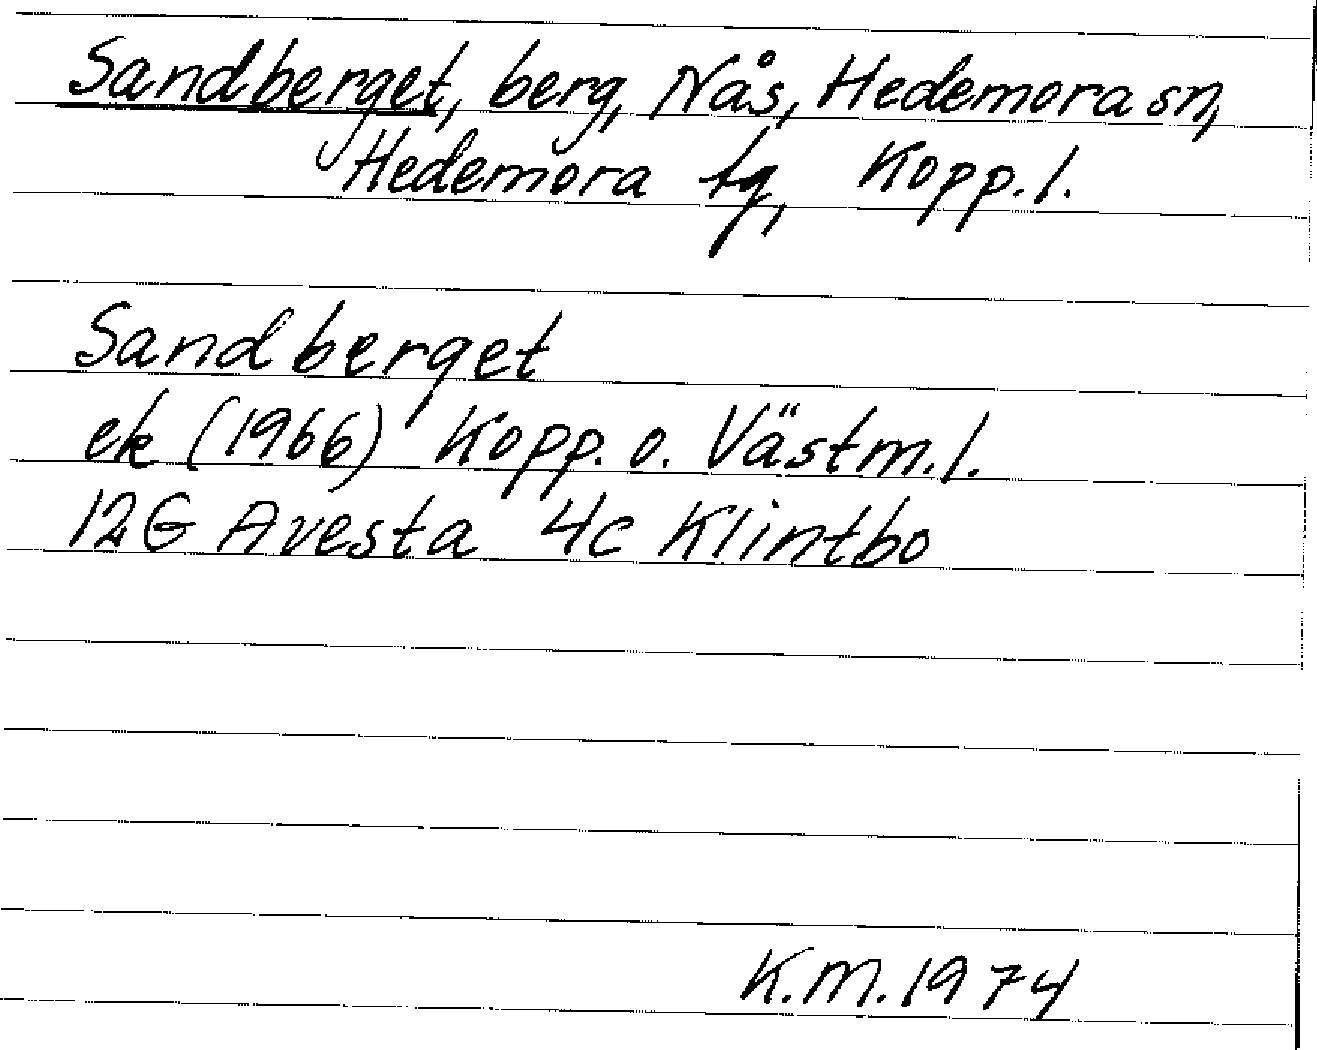 Sandberget, berg, Nås, Hedemora sn,
Hedemora tg, Kopp. l.
Sandberget
ek (1966) Kopp. o. Västm. l.
12G Avesta 4c Klintbo
K.M. 1974